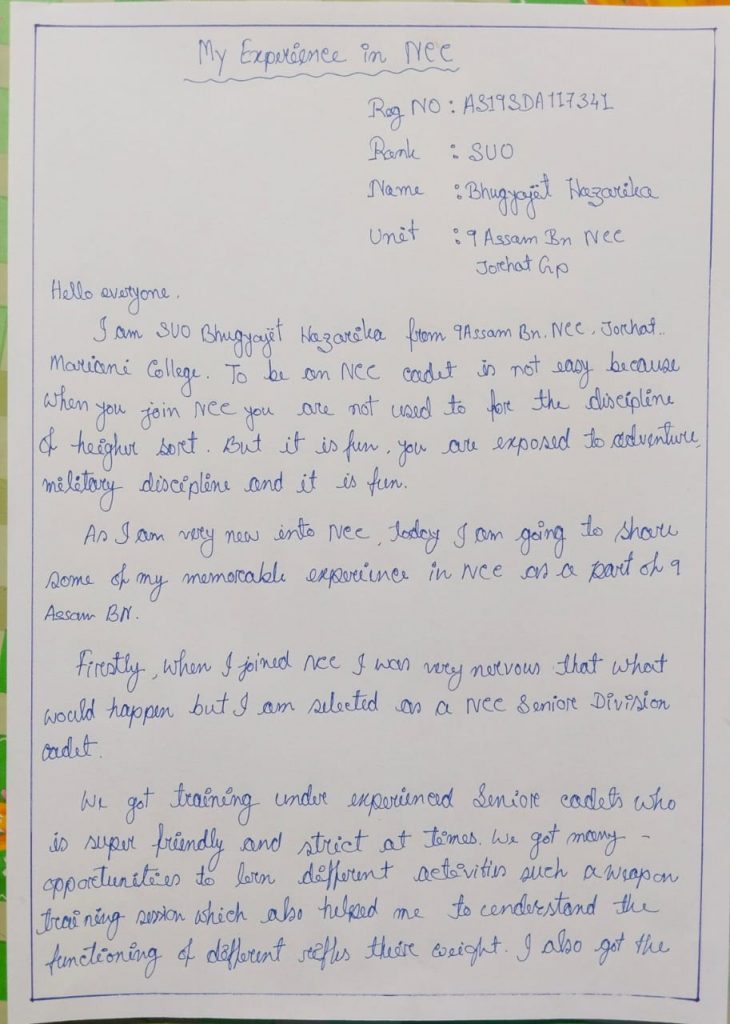 My Experience in NCC
Reg NO : AS19SDA117341
Rank : SUO
Name : Bhugyajët Hazarika
Unit : 9 Assam Bn NCC
Jorhat Gp
Hello everyone.
I am SUO Bhugyajët Hazarika from 9Assam Bn. NCC. Jorhat..
Mariani College. To be an NCC cadet is not easy because
when you join NCC you are not used to for the discipline
of heigher sort. But it is fun. you are exposed to adventure,
military discipline and it is fun.
As I am very new into NCC, today I am going to share
some of my memorable experience in NCC as a part of 9
Assam BN.
Firstly, when I joined NCC I was very nervous that what
would happen but I am selected as a NCC Seniore Division
cadet.
We got training under experienced Seniore cadets who
is super friendly and strict at times. We got many -
opportunities to lern different activities such a weapon
training session which also helped me to understand the
functioning of different rifles their weight. I also got the